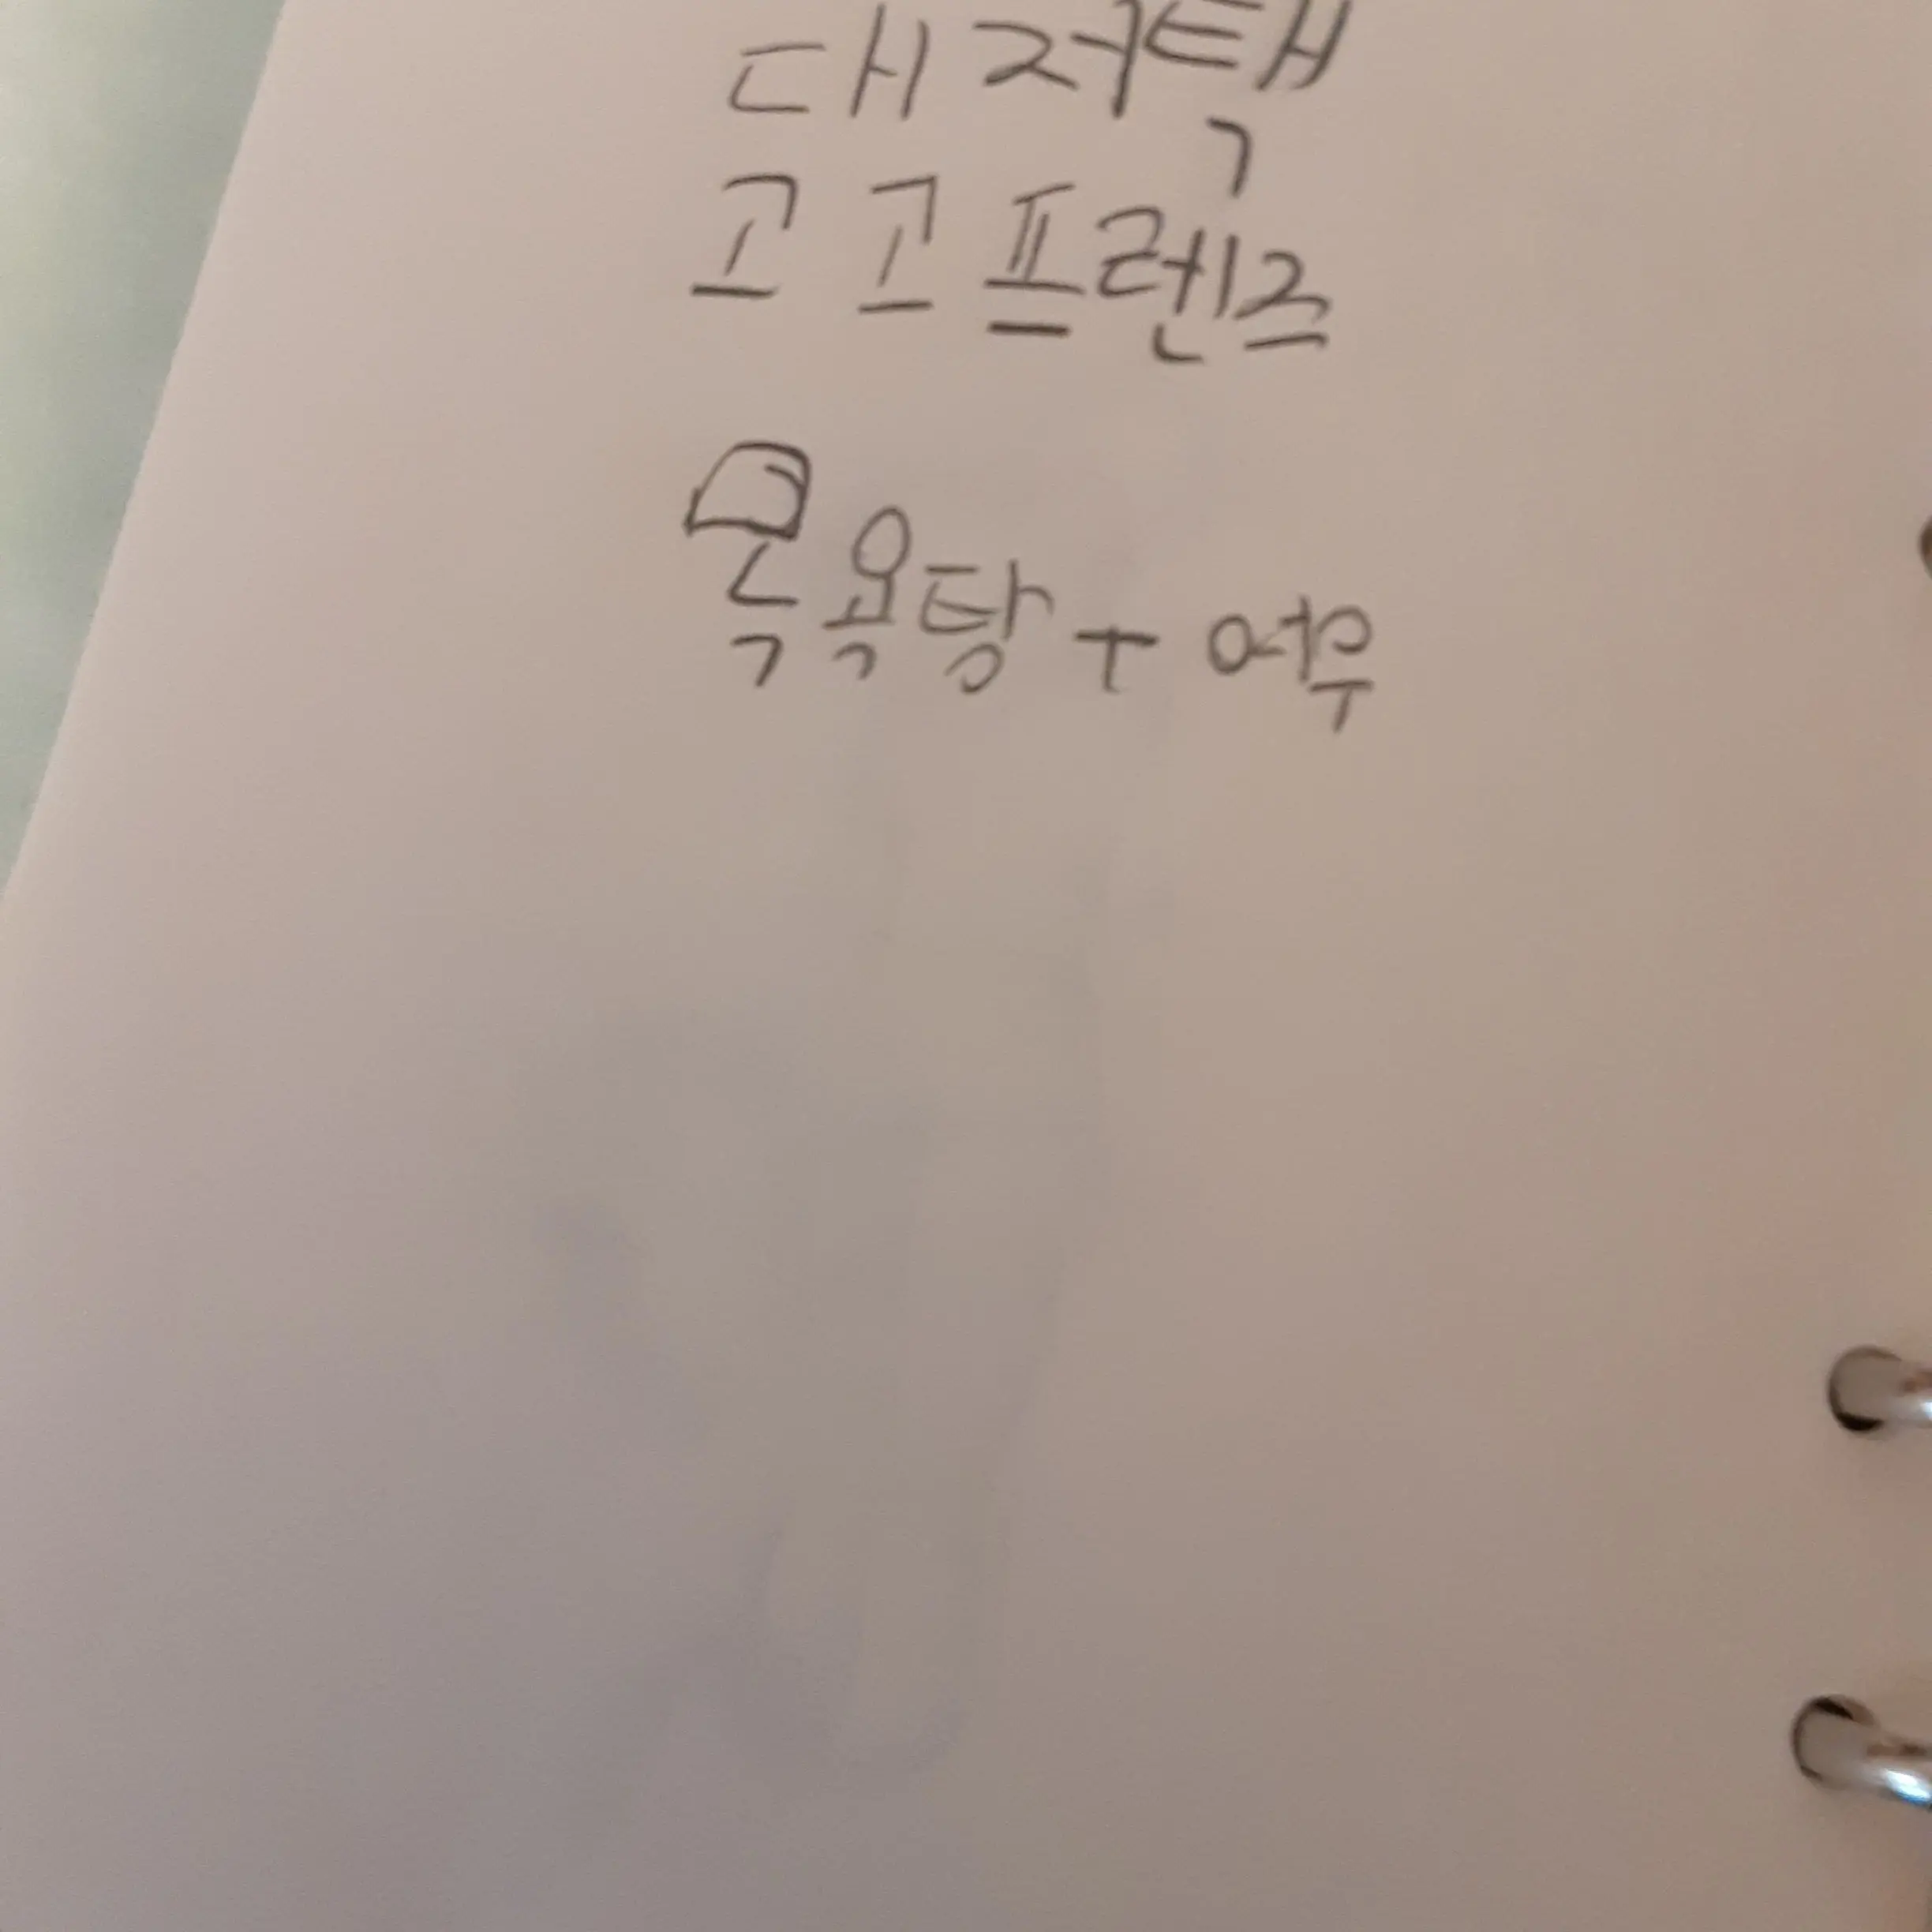 대저택
고고프렌즈
목욕탕 + 여우